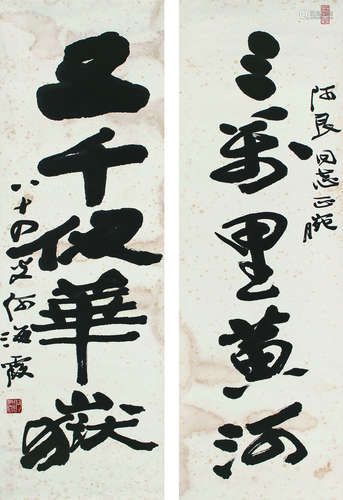 阿良同志正腕
三萬里黄河
五千仞華嶽
八十四叟何海霞